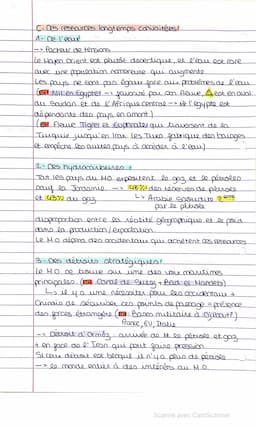 C- Des ressources longtemps convoitées!
1- De l'eau
→ Facteur de tensions
Le Moyen Orient est plutôt désertique, et l'eau est rare
avec une population nombreuse qui augmente
Les pays ne sont pas égaux face aux problèmes de l'eau
(Nil en Egypte → favorisé par son fleuve, est en aval
du Soudan et de l'Afrique centrale → l'Egypte est
dépendante des pays en amont)
(Fleuve Tigre et Euphrate qui traversent de la
Turquie jusqu'en Irak, les Turcs fabrique des barrages
et empêche les autres pays à accéder à l'eau)
2- Des hydrocarbures
Tous les pays du MO exportent le gaz et le pétrole
sauf la Jordanie → 48% des réserves de pétrole
et 43% du gaz
↳ Arabie Saoudite
par le pétrole
disproportion entre la réalité géographique et le poids
dans la production/exportation
Le MO dépend des occidentaux qui achètent ces ressources
3- Des détroits stratégiques!
Le MO se trouve sur une des voies maritimes
principales (Canal de Suez,
↳ il y a une nécessité pour les occidentaux +
Chinois de sécuriser ces points de passage = présence
des forces étrangères (Bases militaires à Djibouti)
Italie
→ Détroit d'Ormuz, arrivée de le pétrole et gaz
+ en face de l'Iran qui peut faire pression
Si ce détroit est bloqué il n'y a plus de pétrole
→ le monde entier a des intérêts au MO
Scanné avec CamScanner